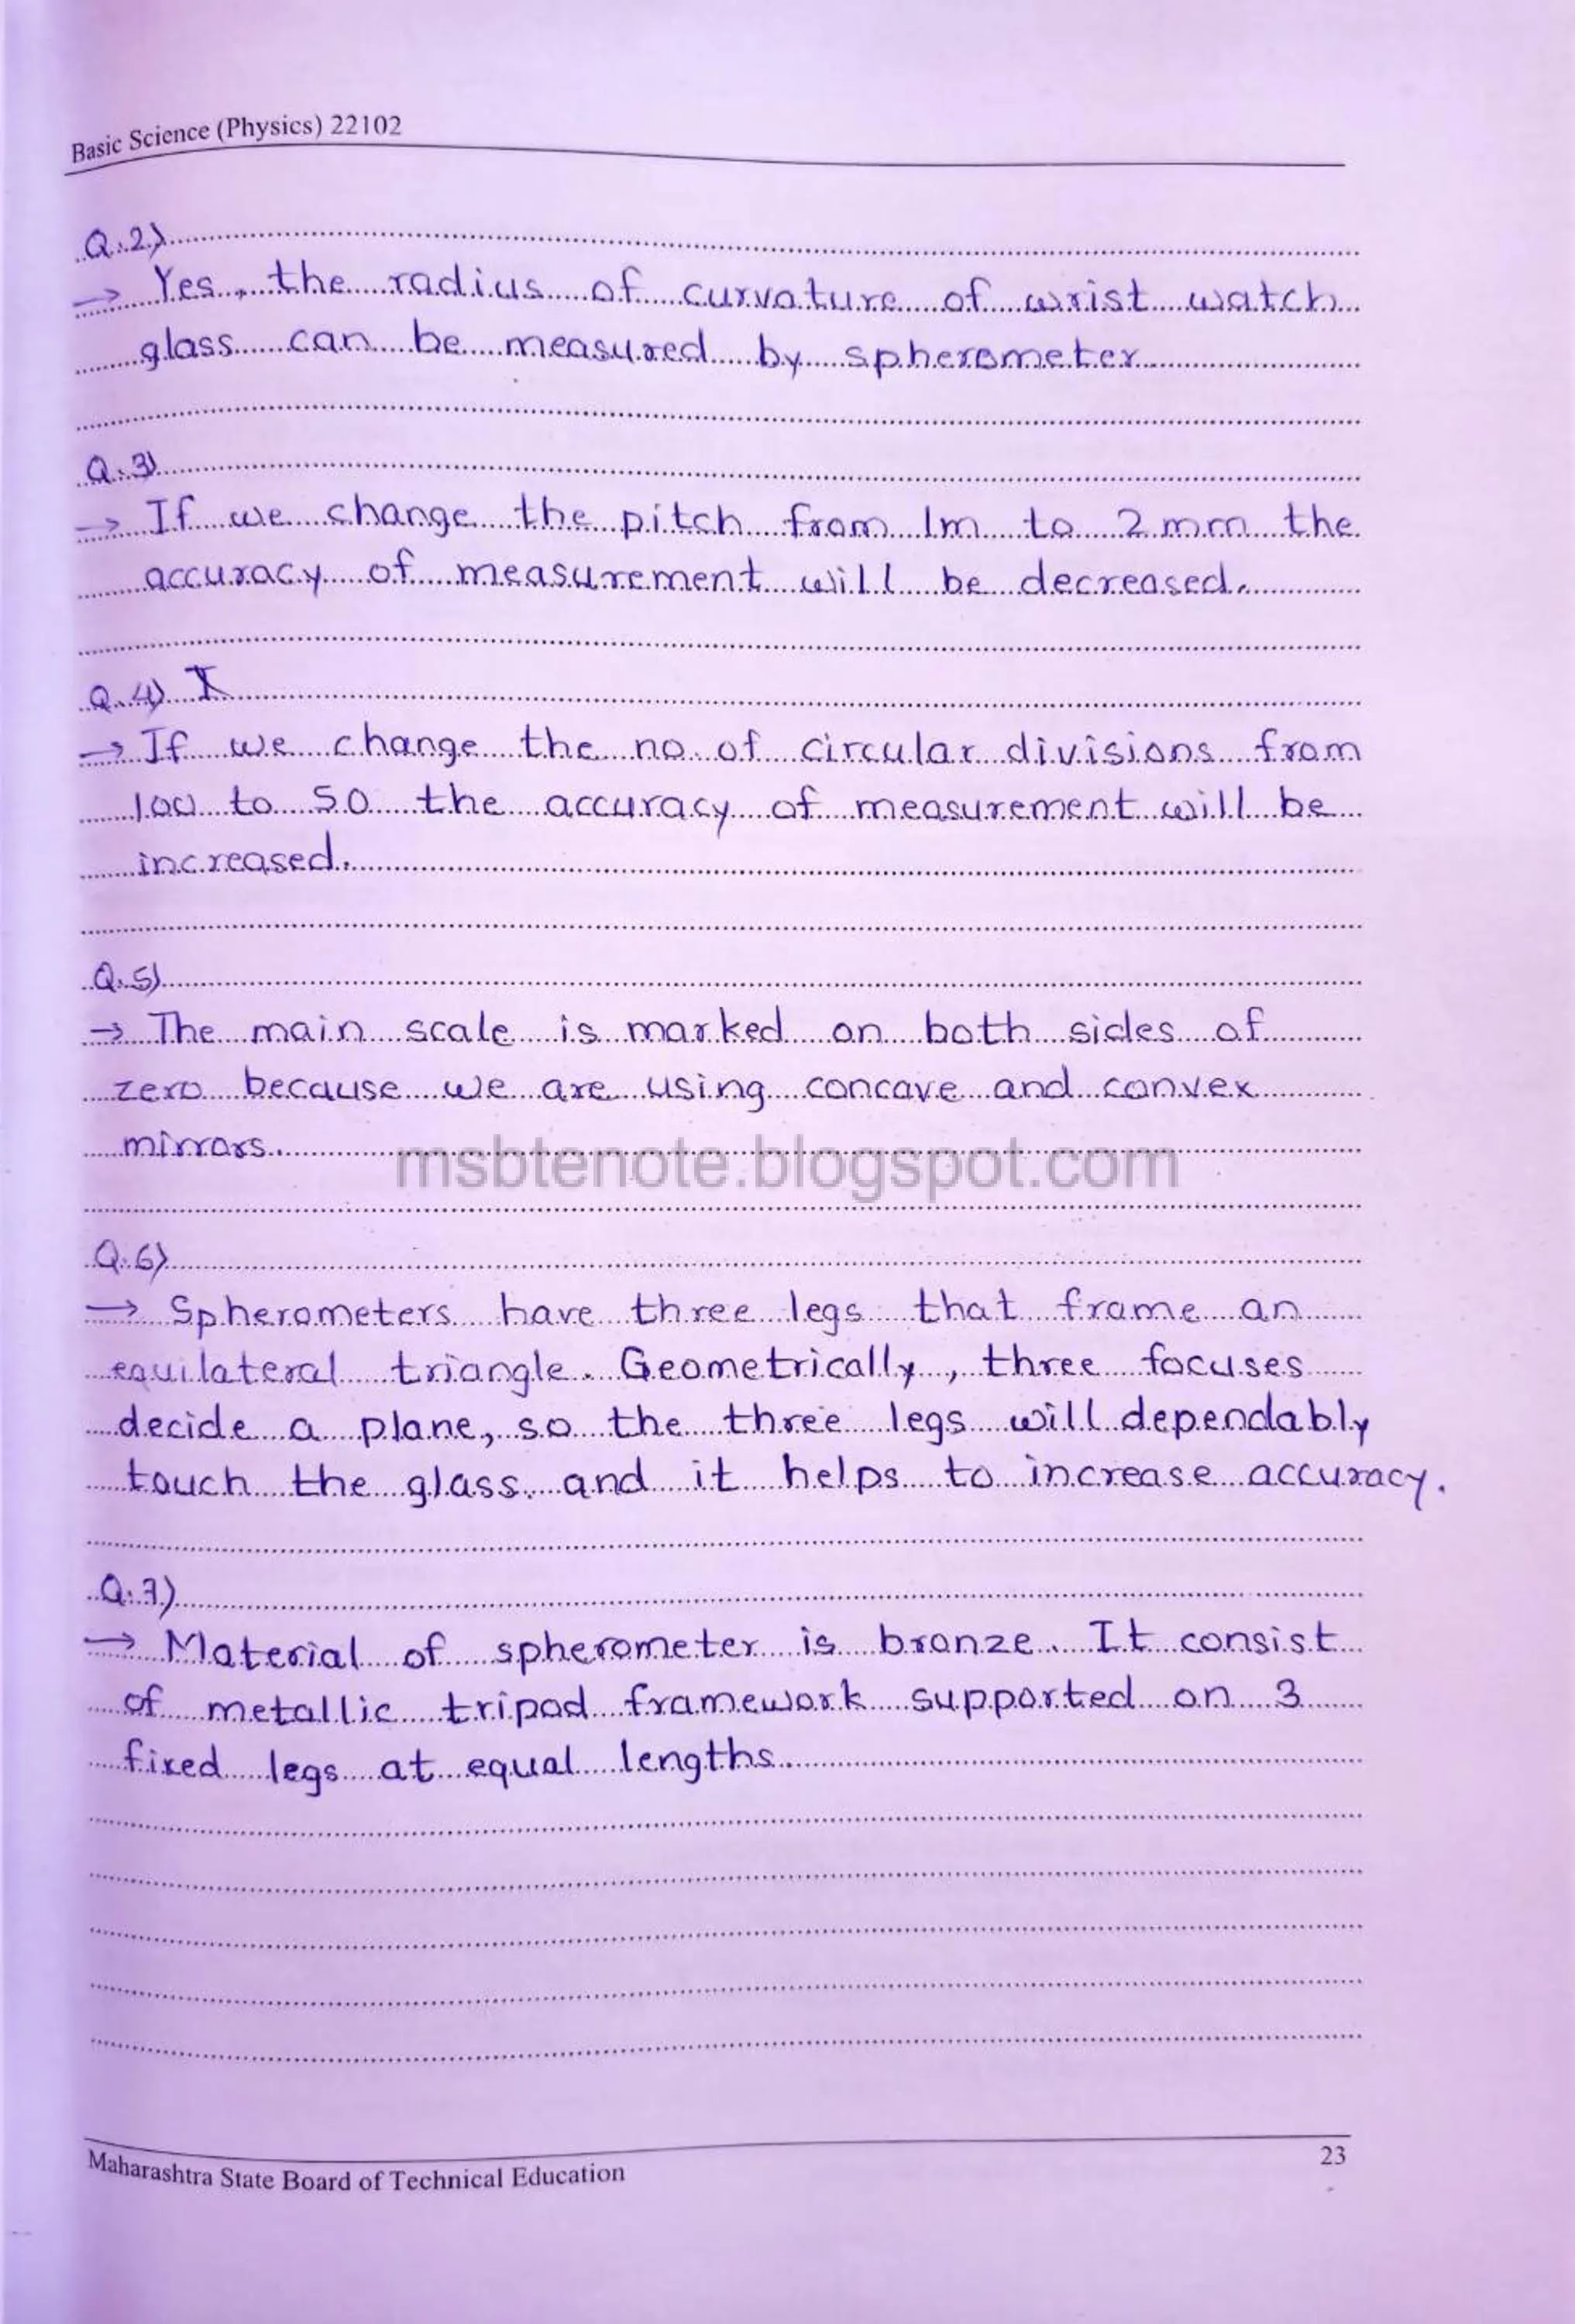 Basic Science (Physics) 22102
Q.2)
→ Yes, the radius of curvature of wrist watch
glass can be measured by spherometer.
Q.3)
→ If we change the pitch from 1m to 2mm the
accuracy of measurement will be decreased.
Q.4)
→ If we change the no. of circular divisions from
100 to 50 the accuracy of measurement will be
increased.
Q.5)
→ The main scale is marked on both sides of
zero because we are using concave and convex
mirrors.
msbtenote.blogspot.com
Q.6)
→ Spherometers have three legs that frame an
equilateral triangle. Geometrically, three focuses
decide a plane, so the three legs will dependably
touch the glass and it helps to increase accuracy.
Q.7)
→ Material of spherometer is bronze. It consist
of metallic tripod framework supported on 3
fixed legs at equal lengths.
Maharashtra State Board of Technical Education
23